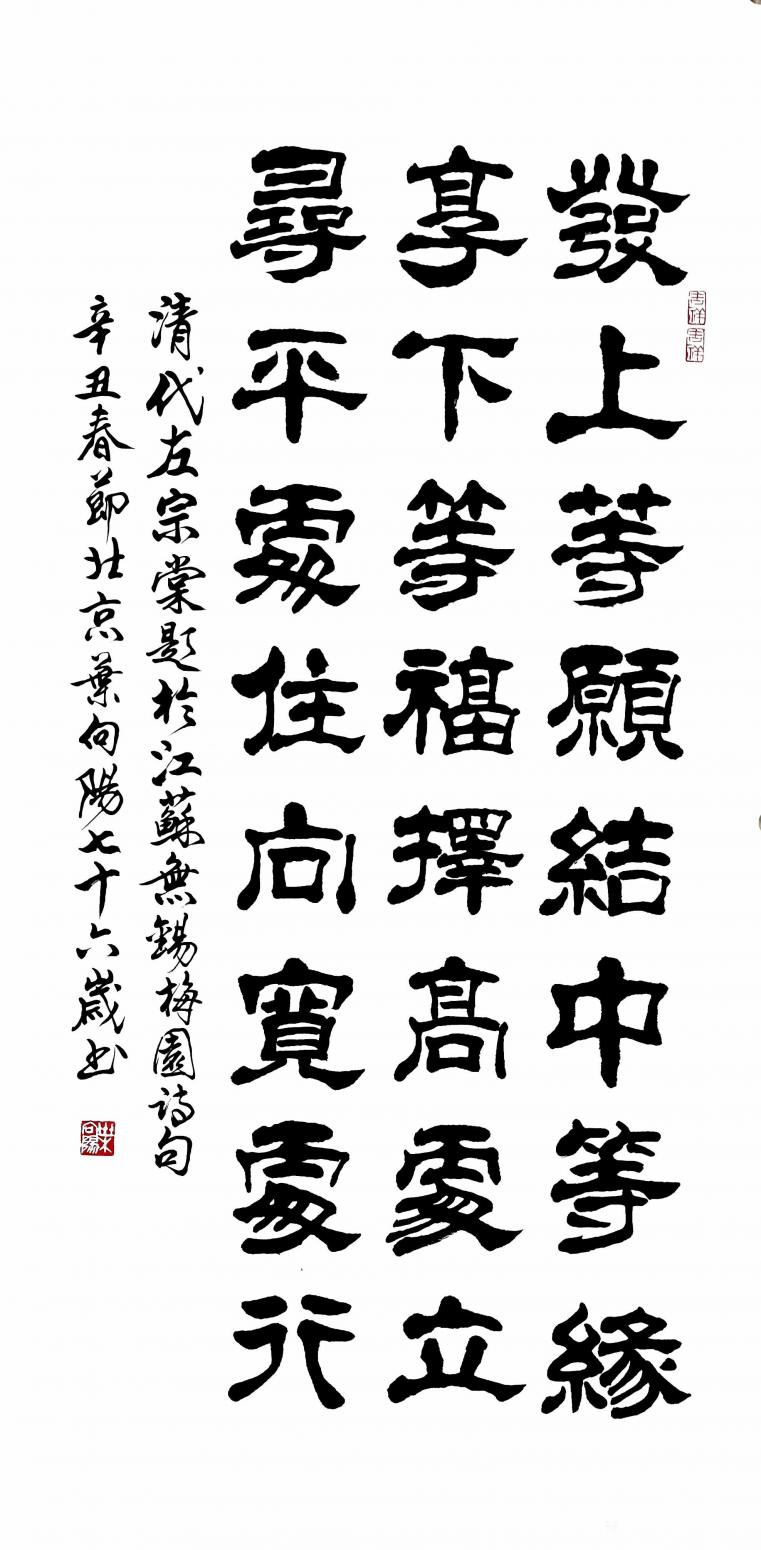 發上等願結中等緣
享下等福擇高處立
尋平處住向寬處行
清代左宗棠題於江蘇無錫梅園詩句
辛丑春節北京葉向陽七十六歲书
葉向陽